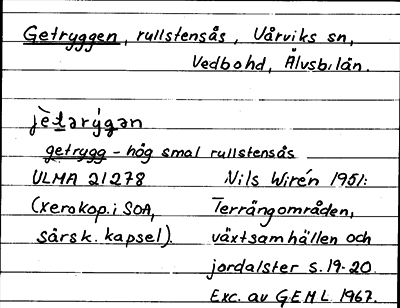 Getryggen, rullstensås, Vårviks sn,
Vedbohd, Älvsb.län.
jè̀tərýgən
getrygg - hög smal rullstensås
ULMA 21278 Nils Wirén 1951:
(Xerokop. i SOA, Terrängområden,
särsk. kapsel). växtsamhällen och
jordalster s. 19-20
Exc. av GEHL 1967.